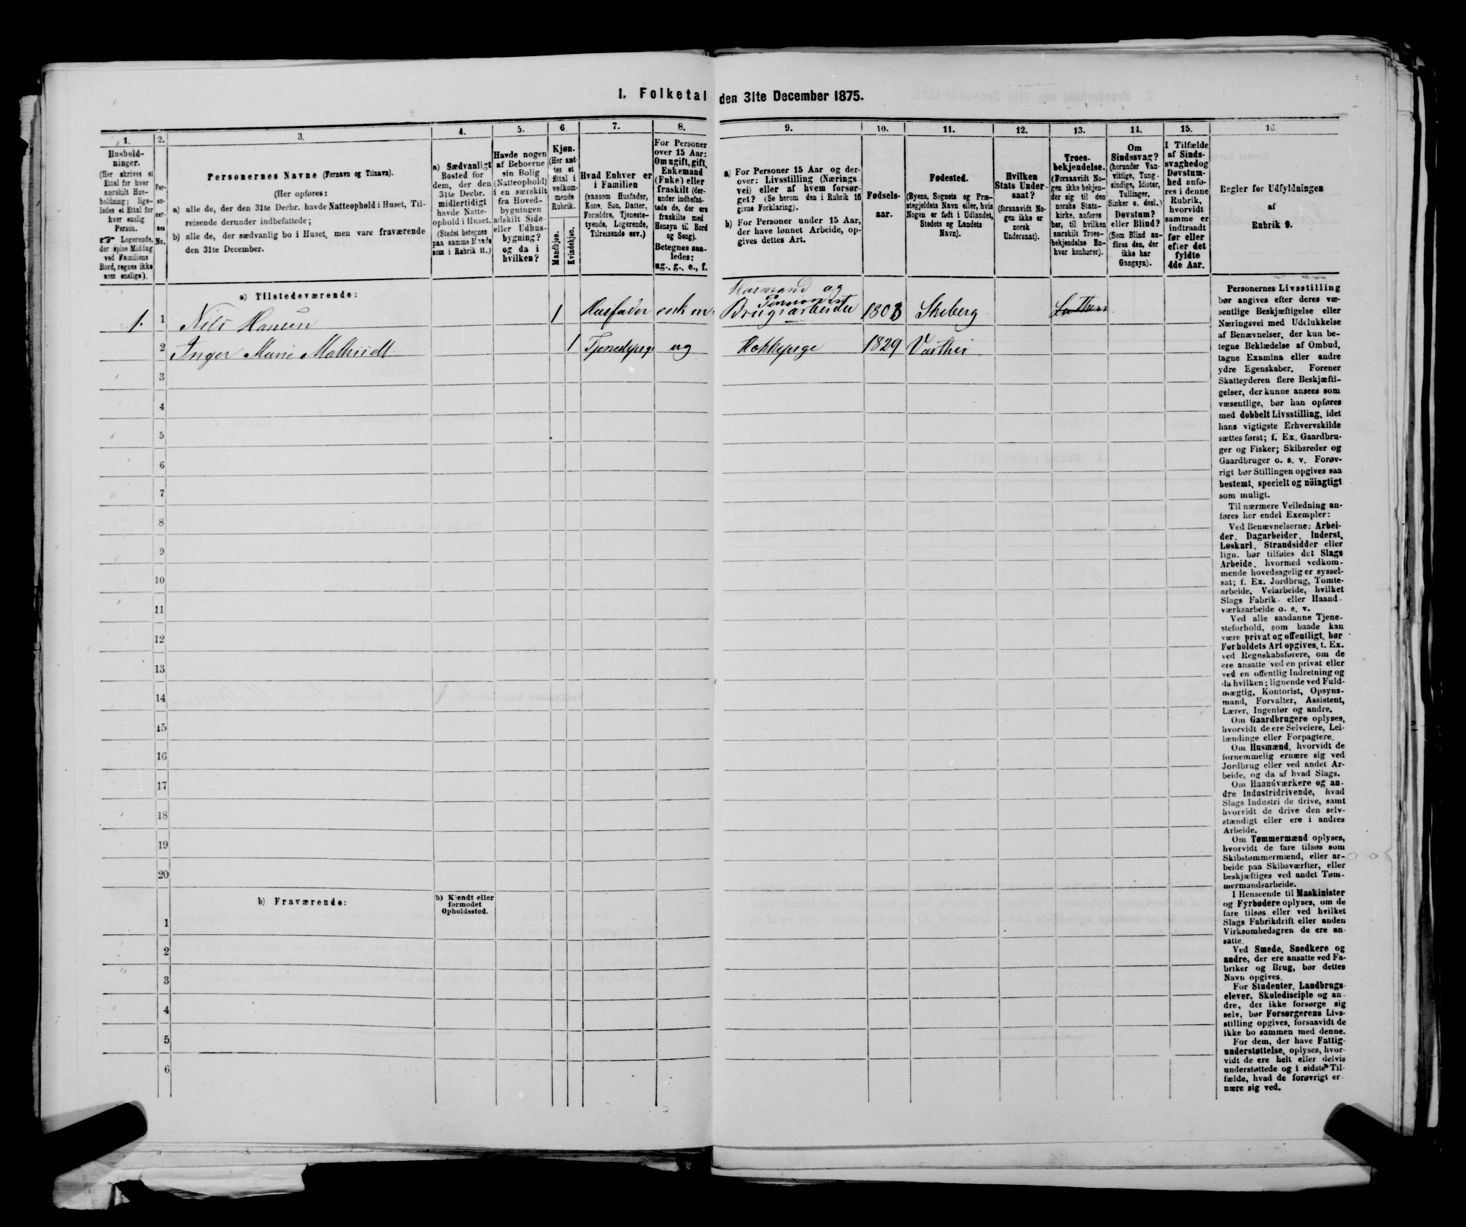 1. Folketal den 31te December 1875.
1.
2.
3.
4.
5.
6.
7.
8.
9.
10.
11.
12.
13.
14.
15.
16.
Hushold-
ninger.
(Her skrives et
Ettal for hver
særskilt Hus-
holdning; lige-
ledes et Ettal for
hver enslig
Person.
☞ Logerende,
der spise Middag
ved Familiens
Bord, regnes ikke
som enslige).
Per-
so-
ner-
nes
No.
Personernes Navne (Fornavn og Tilnavn).
(Her opføres:
a) alle de, der den 31te Decbr. havde Natteophold i Huset, Til-
reisende derunder indbefattede;
b) alle de, der sædvanlig bo i Huset, men vare fraværende
den 31te December.
a) Sædvanligt
Bosted for
dem, der den
31te Decbr.
midlertidigt
havde Natte-
ophold i Huset.
(Stedet betegnes
paa samme Maade
som i Rubrik 11.)
Havde nogen
af Beboerne
sin Bolig
(Natteophold)
i en særskilt
fra Hoved-
bygningen
adskilt Side-
eller Udhus-
bygning?
og da i
hvilken?
Kjøn.
(Her sæt-
tes et
Ettal i
vedkom-
mende
Rubrik.
Mandkjøn.
Kvindekjøn.
Hvad Enhver er
i Familien
(saasom Husfader,
Kone, Søn, Datter,
Forældre, Tjeneste-
tyende, Logerende,
Tilreisende osv.)
For Personer
over 15 Aar:
Om ugift, gift,
Enkemand
(Enke) eller
fraskilt (der-
under indbefat-
tede de, der ere
fraskilte med
Hensyn til Bord
og Seng).
Betegnes saa-
ledes:
ug., g., e., f.
a) For Personer 15 Aar og der-
over: Livsstilling (Nærings-
vei) eller af hvem forsør-
get? (Se herom den i Rubrik 16
givne Forklaring).
b) For Personer under 15 Aar,
der have lønnet Arbeide, op-
gives dettes Art.
Fødsels-
aar.
Fødested.
(Byens, Sognets og Præ-
stegjeldets Navn eller, hvis
Nogen er født i Udlandet,
Stedets og Landets
Navn).
Hvilken
Stats Under-
saat?
(forsaavidt No-
gen ikke er
norsk
Undersaat).
Troes-
bekjendelse.
(Forsaavidt No-
gen ikke bekjen-
der sig til den
norske Stats-
kirke, anføres
her, til hvilken
særskilt Troes-
bekjendelse En-
hver henhører).
Om
Sindssvag?
(herunder Van-
vittige, Tung-
sindige, Idioter,
Tullinger,
Sinker o. desl.)
Døvstum?
eller Blind?
(Som Blind an-
føres den, der
ikke har
Gangsyn).
I Tilfælde
af Sinds-
svaghed og
Døvstum-
hed anfø-
res i denne
Rubrik,
hvorvidt
samme er
indtraadt
før eller
efter det
fyldte
4de Aar.
Regler for Udfyldningen
af
Rubrik 9.
a) Tilstedeværende:
1. 1 Nils Hansen 1 Husfader enkem. Husmand og Pensionist Brugsarbeider 1803 Skiberg
2 Inger Marie Mathisdt. 1 Tjenestepige ug Kokkepige 1829
3
4
5
6
7
8
9
10
11
12
13
14
15
16
17
18
19
20
b) Fraværende:
b) Kjendt eller
formodet
Opholdssted.
1
2
3
4
5
6
Personernes Livsstilling
bør angives efter deres væ-
sentlige Beskjæftigelse eller
Næringsvei med Udelukkelse
af Benævnelser, der kun be-
tegne Beklædelse af Ombud,
tagne Examina eller andre
ydre Egenskaber. Forener
Skatteyderen flere Beskjæfti-
gelser, der kunne ansees som
væsentlige, bør han opføres
med dobbelt Livsstilling, idet
hans vigtigste Erhvervskilde
sættes først; f. Ex. Gaardbru-
ger og Fisker; Skibsreder og
Gaardbruger o. s. v. Forøv-
rigt bør Stillingen opgives saa
bestemt, specielt og nöiagtigt
som muligt.
Til nærmere Veiledning an-
føres her endel Exempler:
Ved Benævnelserne: Arbei-
der, Dagarbeider, Inderst,
Løskarl, Strandsidder eller
lign. bør tilføies det Slags
Arbeide, hvormed vedkom-
mende hovedsagelig er syssel-
sat; f. Ex. Jordbrug, Tomte-
arbeide, Veiarbeide, hvilket
Slags Fabrik- eller Haand-
værksarbeide o. s. v.
Ved alle saadanne Tjene-
steforhold, som baade kan
være privat og offentligt, bør
Forholdets Art opgives, f. Ex.
ved Regnskabsførere, om de
ere ansatte ved en privat eller
ved en offentlig Indretning og
da hvilken; lignende ved Fuld-
mægtig, Kontorist, Opsyns-
mand, Forvalter, Assistent,
Lærer, Ingeniør og andre.
Om Gaardbrugere oplyses,
hvorvidt de ere Selveiere, Lei-
lændinge eller Forpagtere.
Om Husmænd, hvorvidt de
fornemmelig ernære sig ved
Jordbrug eller ved andet Ar-
beide, og da af hvad Slags.
Om Haandværkere og an-
dre Industridrivende, hvad
Slags Industri de drive, samt
hvorvidt de drive den selv-
stændigt eller ere i andres
Arbeide.
Om Tømmermænd oplyses,
hvorvidt de fare tilsøs som
Skibstømmermænd, eller ar-
beide paa Skibsværfter, eller
beskjæftiges ved andet Tøm-
mermandsarbeide.
I Henseende til Maskinister
og Fyrbødere oplyses, om de
fare tilsøs eller ved hvilket
Slags Fabrikdrift eller anden
Virksomhedsgren de ere an-
satte.
Ved Smede, Snedkere og
andre, der ere ansatte ved Fa-
briker og Brug, bør dettes
Navn opgives.
For Studenter, Landbrugs-
elever, Skoledisciple og an-
dre, der ikke forsørge sig
selv, bør Forsørgerens Livs-
stilling opgives, forsaavidt de
ikke bo sammen med denne.
For dem, der have Fattig-
understøttelse, oplyses, hvor-
vidt de ere helt eller delvis
understøttede og i sidste Til-
fælde, hvad de forøvrigt er-
nære sig ved.